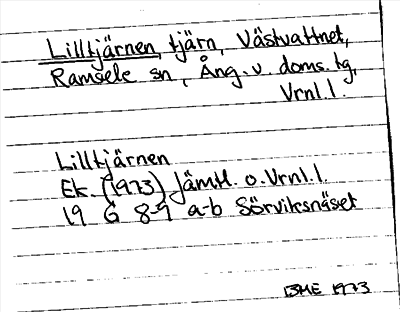 Lilltjärnen, tjärn, Västvattnet,
Ramsele sn, Ång. v. doms. tg,
Vrnl. l.
Lilltjärnen
Ek. (1973) Jämtl. o. Vrnl. l.
19 G 8-9 a-b Sörviksnäset
BME 1973